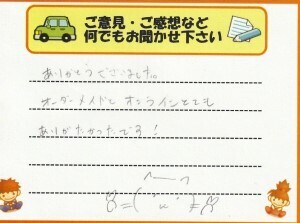 ご意見・ご感想など
何でもお聞かせ下さい
ありがとうございました。
オーダーメイドと オンラインとても
ありがたかったです!